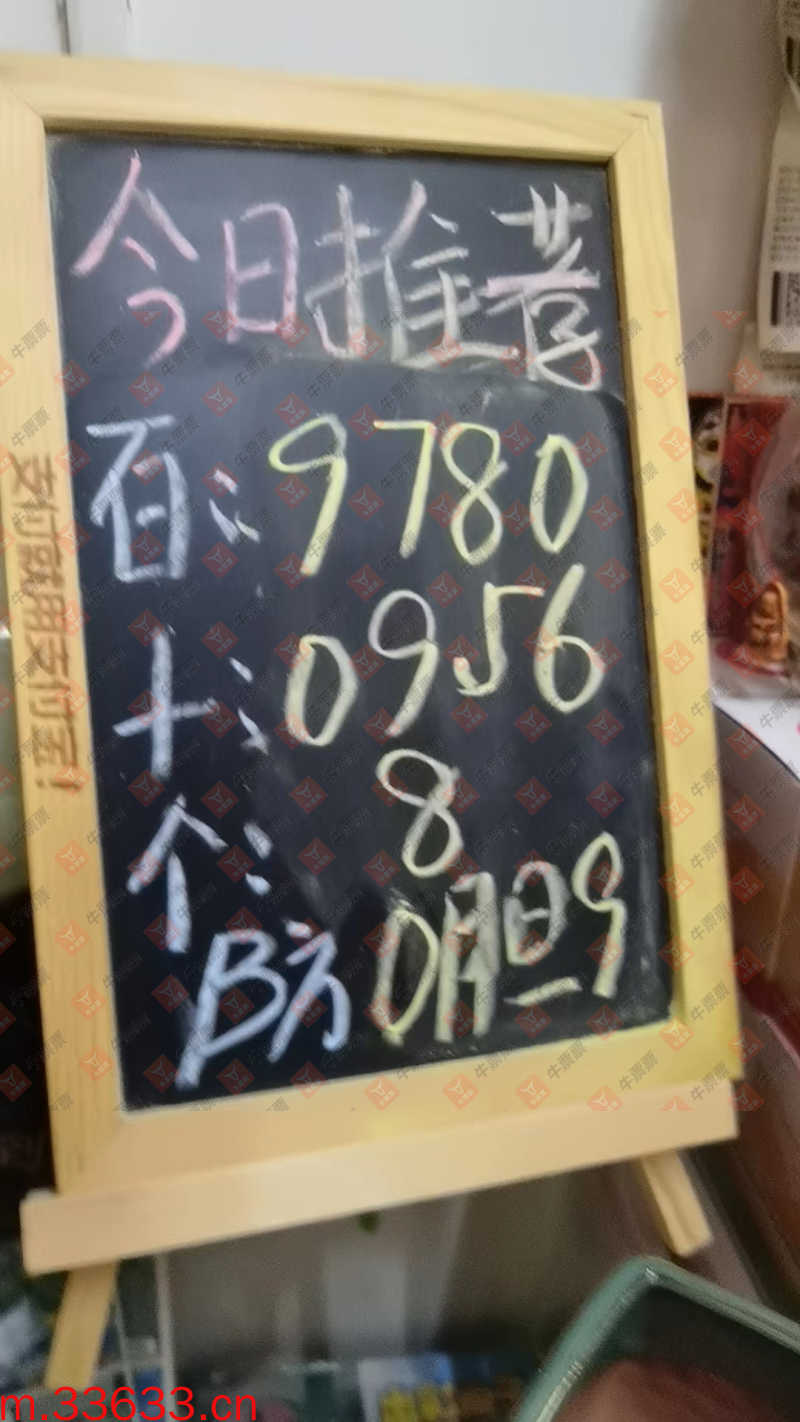 今日推荐
百:9780
十:0956
个:8
防0胆9
支付就用支付宝!
牛票票
m.33633.cn